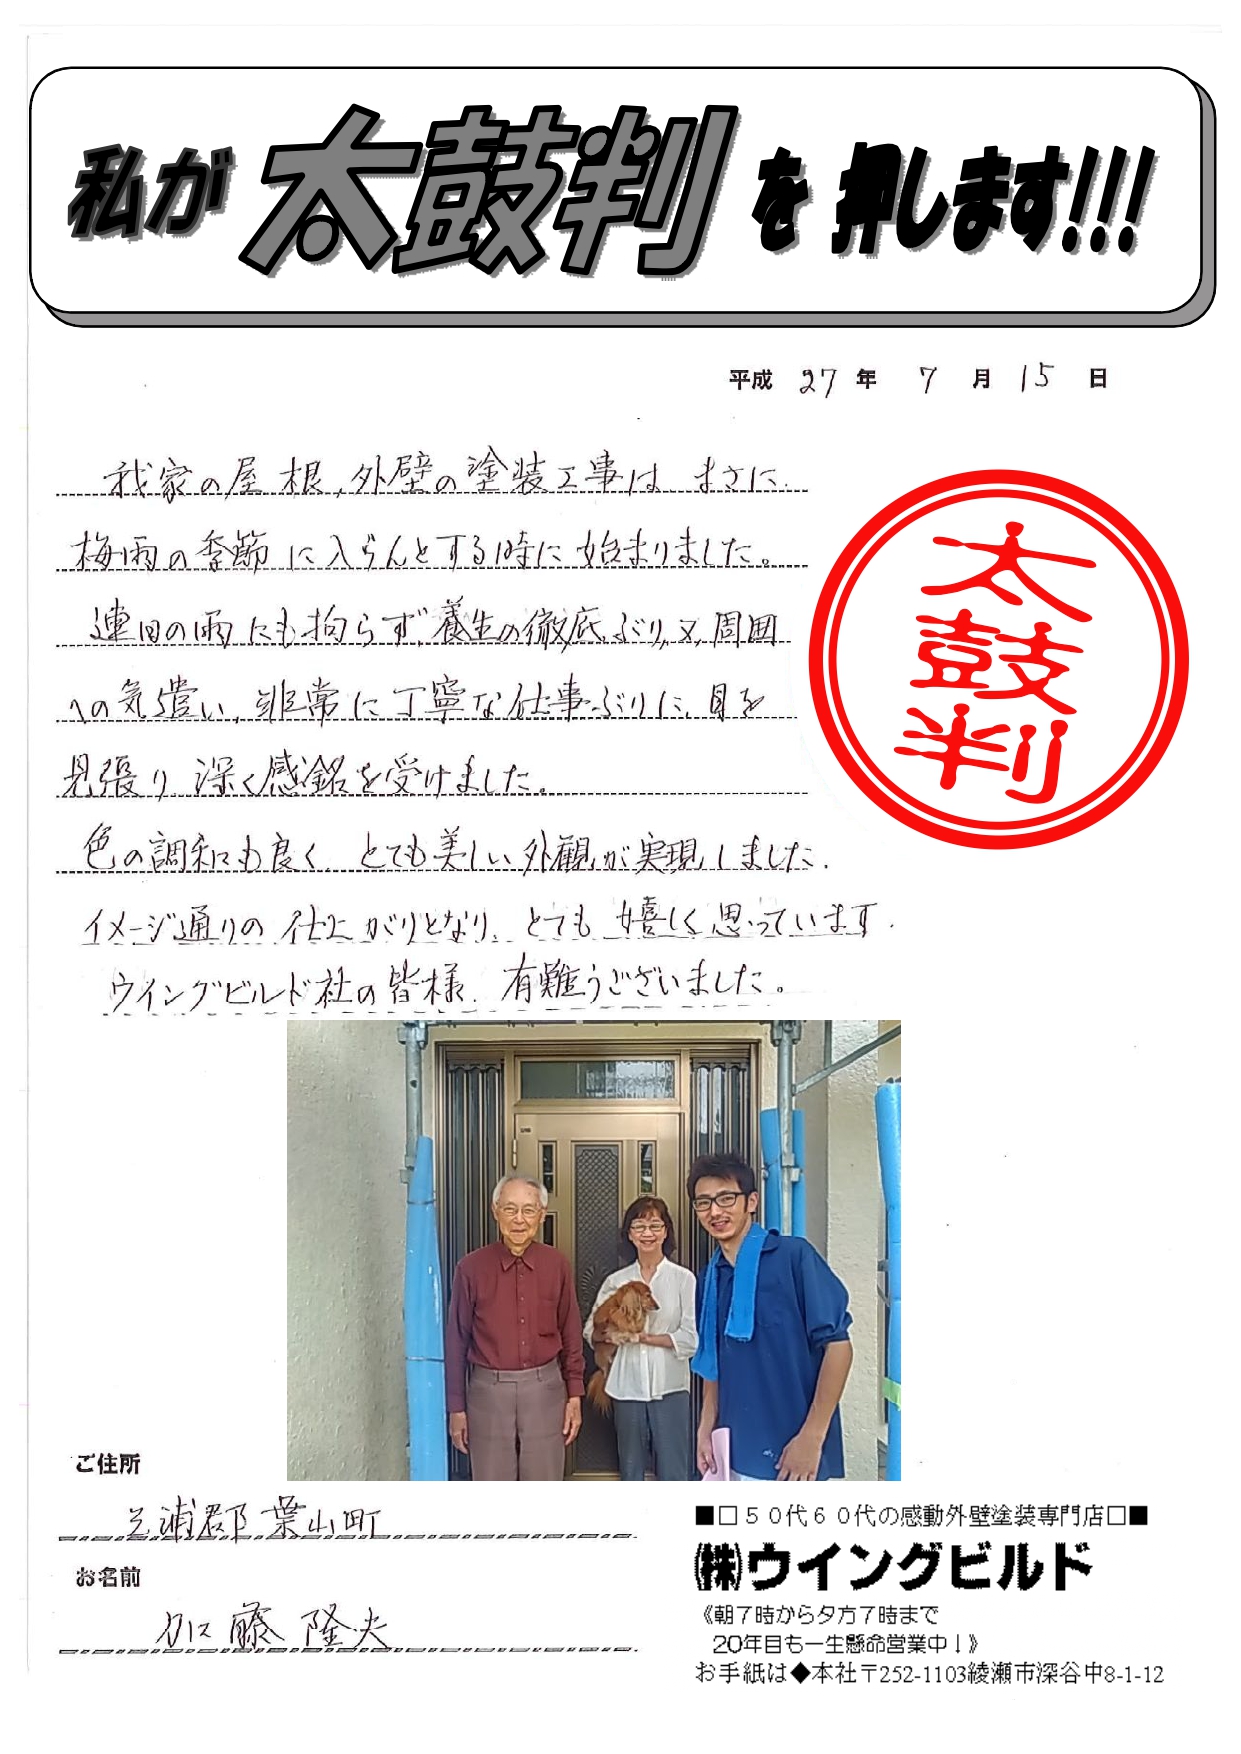 私が太鼓判を押します!!!
平成 27 年 7 月 15 日
我家の屋根,外壁の塗装工事は まさに
梅雨の季節に入らんとする時に始まりました。
連日の雨にも拘らず養生の徹底ぶり,又,周囲
への気遣い,非常に丁寧な仕事ぶりに,目を
見張り 深く感銘を受けました。
色の調和も良く とても美しい外観が実現しました.
イメージ通りの仕上がりとなり、とても嬉しく思っています.
ウイングビルド社の皆様、有難うございました。
太鼓判
ご住所
三浦郡葉山町
お名前
加藤 隆夫
■□50代60代の感動外壁塗装専門店□■
㈱ウイングビルド
《朝7時から夕方7時まで
20年目も一生懸命営業中!》
お手紙は◆本社〒252-1103綾瀬市深谷中8-1-12